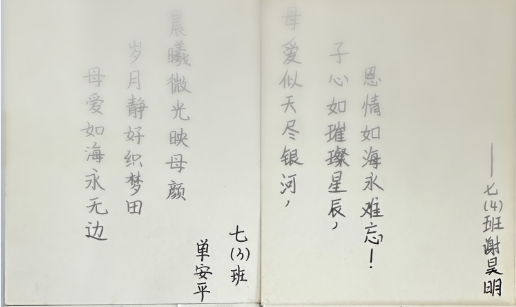 晨曦微光映母颜
岁月静好织梦田
母爱如海永无边
七(3)班
单安平
母爱似天尽银河,
子心如璀璨星辰,
恩情如海永难忘!
——七(4)班谢昊明